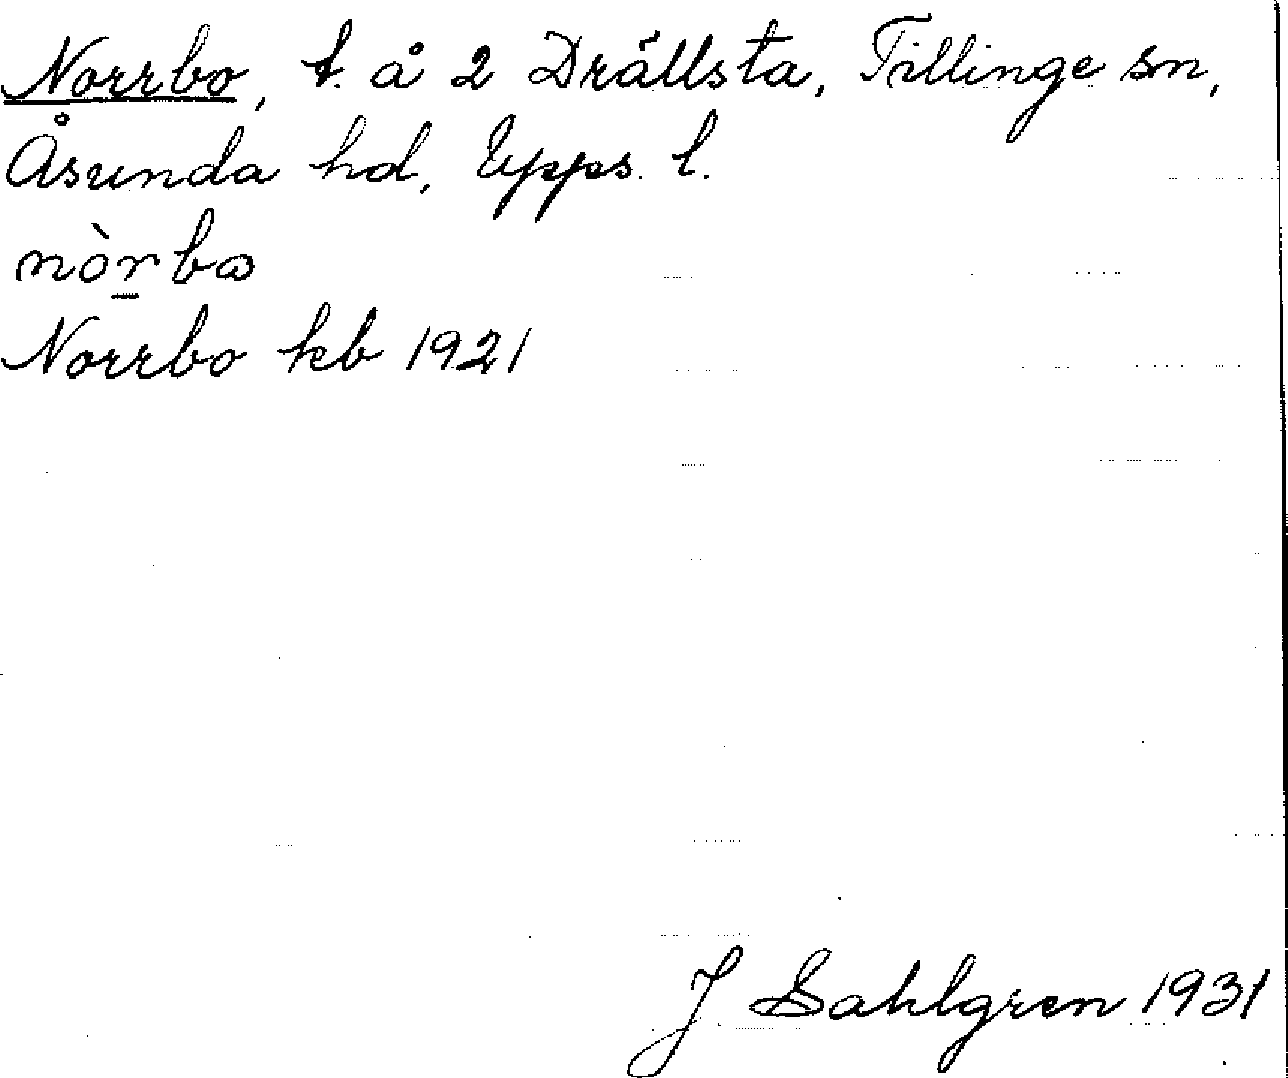 Norrbo, t. å 2 Drällsta, Tillinge sn,
Åsunda hd, Upps. l.
nòr̲bω
Norrbo kb 1921
J Sahlgren 1931